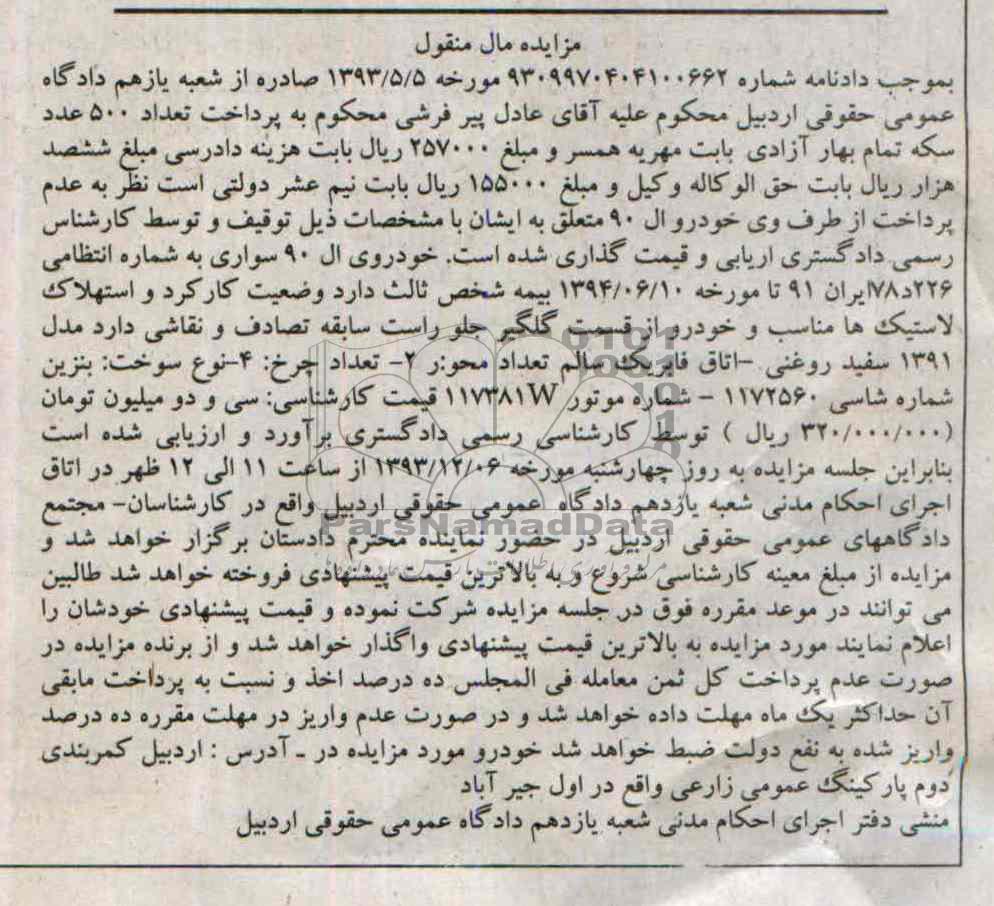 مزایده مال منقول
بموجب دادنامه شماره ۹۳۰۹۹۷۰۴۰۴۱۰۰۶۶۲ مورخه ۱۳۹۳/۵/۵ صادره از شعبه یازدهم دادگاه
عمومی حقوقی اردبیل محکوم علیه آقای عادل پیر فرشی محکوم به پرداخت تعداد ۵۰۰ عدد
سکه تمام بهار آزادی بابت مهریه همسر و مبلغ ۲۵۷۰۰۰ ریال بابت هزینه دادرسی مبلغ ششصد
هزار ریال بابت حق الوکاله وکیل و مبلغ ۱۵۵۰۰۰ ریال بابت نیم عشر دولتی است نظر به عدم
پرداخت از طرف وی خودرو ال ۹۰ متعلق به ایشان با مشخصات ذیل توقیف و توسط کارشناس
رسمی دادگستری اریابی و قیمت گذاری شده است. خودروی ال ۹۰ سواری به شماره انتظامی
۲۲۶د۷۸ایران ۹۱ تا مورخه ۱۳۹۴/۰۶/۱۰ بیمه شخص ثالث دارد وضعیت کارکرد و استهلاک
لاستیک ها مناسب و خودرو از قسمت گلگیر جلو راست سابقه تصادف و نقاشی دارد مدل
۱۳۹۱ سفید روغنی -اتاق فابریک سالم تعداد محور: ۲- تعداد چرخ: ۴-نوع سوخت: بنزین
شماره شاسی ۱۱۷۲۵۶۰ - شماره موتور ۱۱۷۳۸۱W قیمت کارشناسی: سی و دو میلیون تومان
(۳۲۰/۰۰۰/۰۰۰ ریال ) توسط کارشناسی رسمی دادگستری برآورد و ارزیابی شده است
بنابراین جلسه مزایده به روز چهارشنبه مورخه ۱۳۹۳/۱۲/۰۶ از ساعت ۱۱ الی ۱۲ ظهر در اتاق
اجرای احکام مدنی شعبه یازدهم دادگاه عمومی حقوقی اردبیل واقع در کارشناسان- مجتمع
دادگاههای عمومی حقوقی اردبیل در حضور نماینده محترم دادستان برگزار خواهد شد و
مزایده از مبلغ معینه کارشناسی شروع و به بالاترین قیمت پیشنهادی فروخته خواهد شد طالبین
می توانند در موعد مقرره فوق در جلسه مزایده شرکت نموده و قیمت پیشنهادی خودشان را
اعلام نمایند مورد مزایده به بالاترین قیمت پیشنهادی واگذار خواهد شد و از برنده مزایده در
صورت عدم پرداخت کل ثمن معامله فی المجلس ده درصد اخذ و نسبت به پرداخت مابقی
آن حداکثر یک ماه مهلت داده خواهد شد و در صورت عدم واریز در مهلت مقرره ده درصد
واریز شده به نفع دولت ضبط خواهد شد خودرو مورد مزایده در ـ آدرس : اردبیل کمربندی
دوم پارکینگ عمومی زارعی واقع در اول جیر آباد
منشی دفتر اجرای احکام مدنی شعبه یازدهم دادگاه عمومی حقوقی اردبیل
ParsNamadData